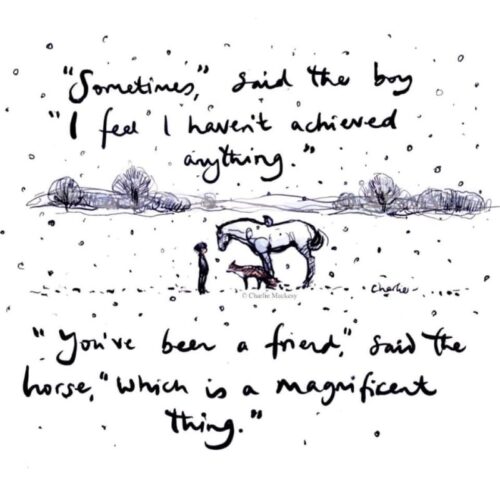 "Sometimes," said the boy
"I feel I haven't achieved
anything."
© Charlie Mackesy
Charlie
"You've been a friend," said the
horse, "which is a magnificent
thing."